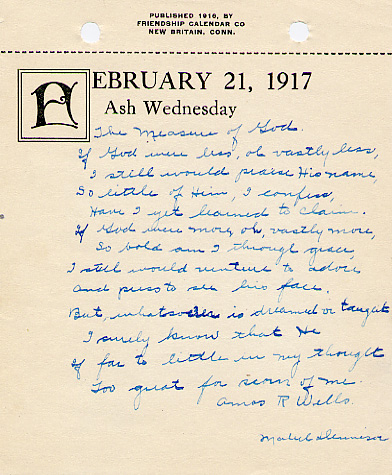 PUBLISHED 1916, BY
FRIENDSHIP CALENDAR CO
NEW BRITAIN, CONN.
FEBRUARY 21, 1917
Ash Wednesday
The Measure of God.
If God were less, oh vastly less,
I still would praise His name,
So little of Him, I confess,
Have I yet learned to claim.
If God were more, oh, vastly more,
So bold am I through grace,
I still would venture to adore
And press to see his face.
But, whatsoe'er is dreamed or taught
I surely know that He
If far to little in my thought
Too great for scorn of me.
Amos R Wells.